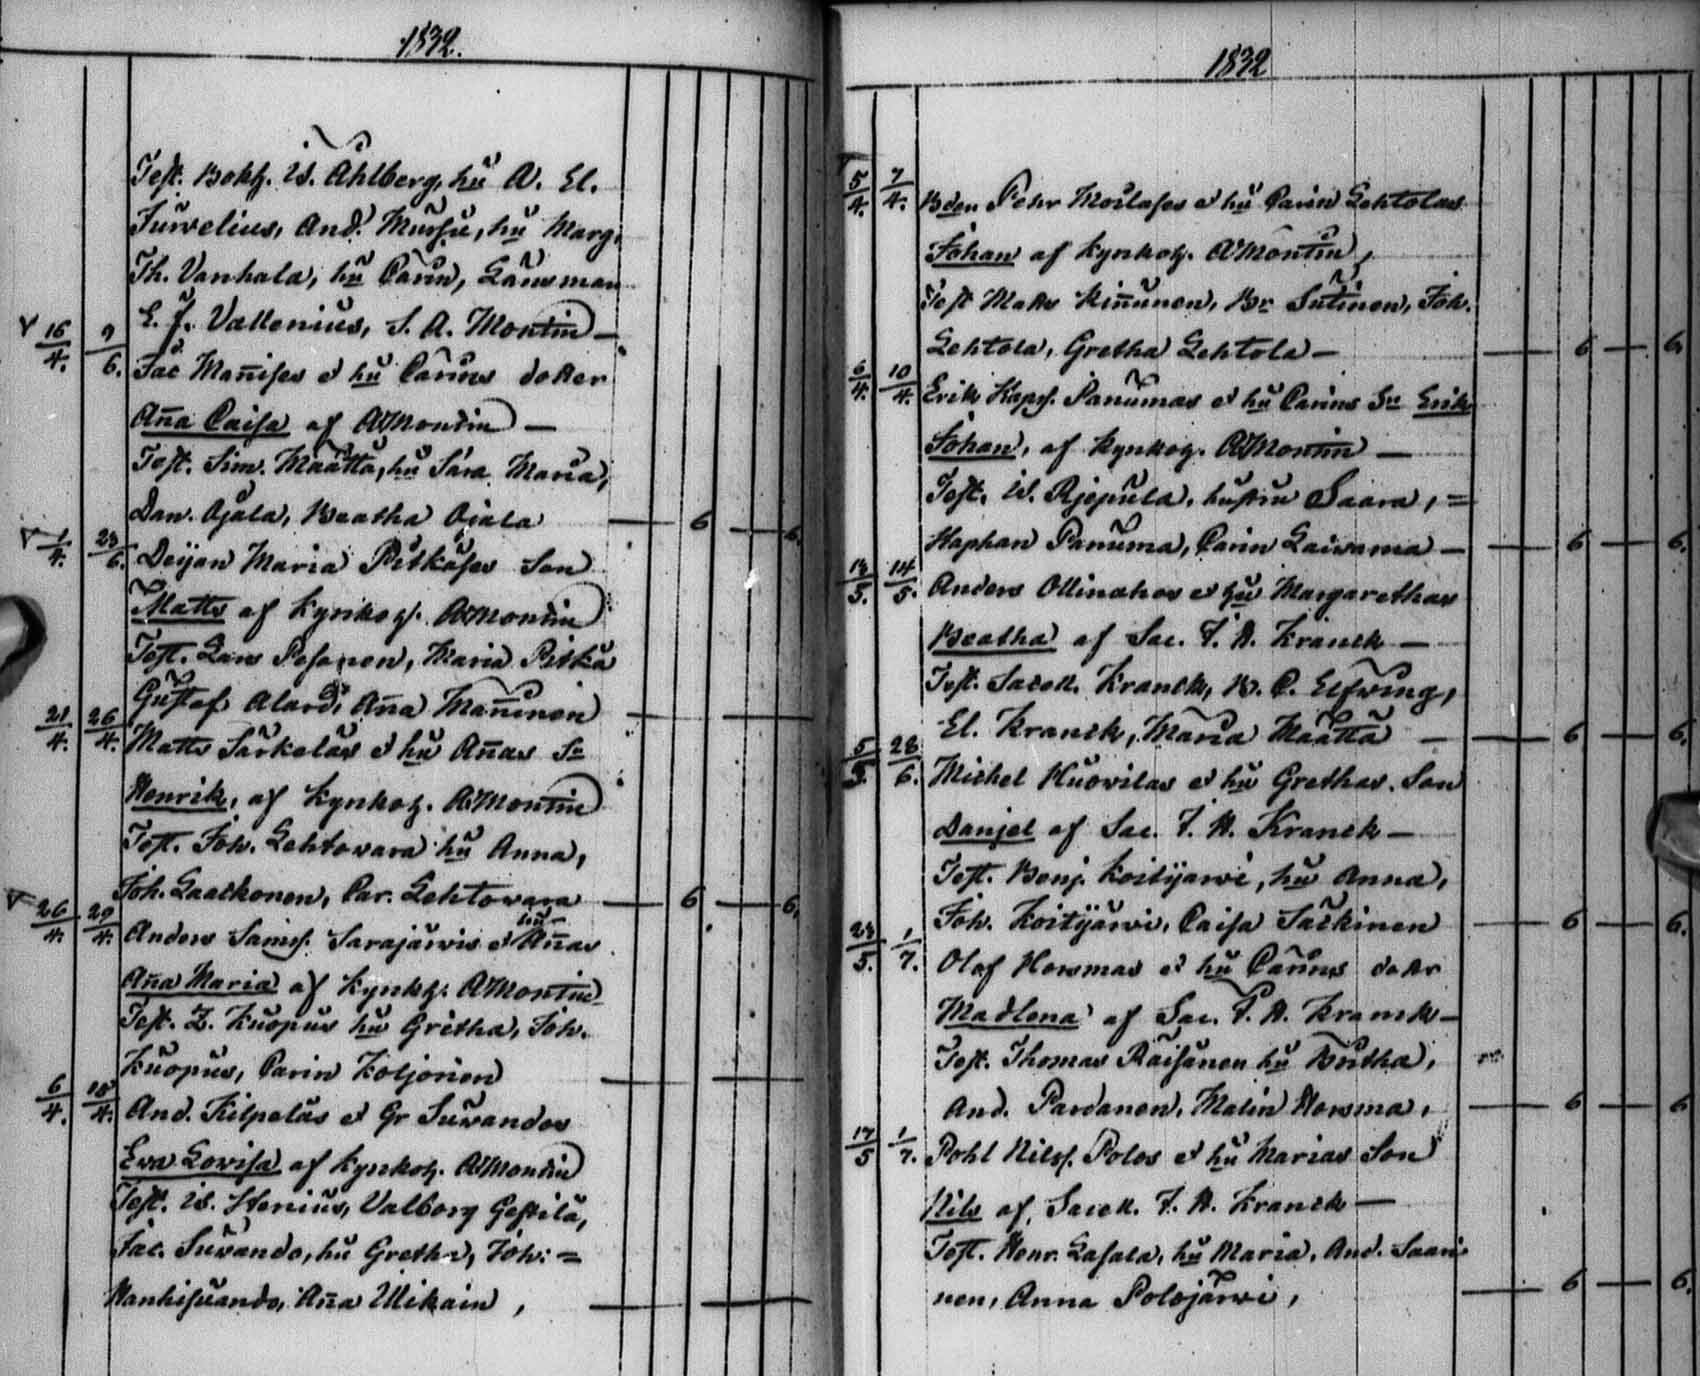 1832.
Test. Bokh. Is. Ahlberg, hu A. El.
Juvelius, And. Mursu, hu Marg.
Th. Vanhala, hu Carin, Länsman
E. J. Vallenius, S. A. Montin —
16/4. 9/6. Jac Mañises et hu Carins dotter
Aña Caisa af A Montin —
Test. Sim. Määttä, hu Sara Maria,
Dan. Ojala, Beatha Ojala — 6 — 6.
1/4. 23/6. Deijan Maria Pitkäses Son
Matts af Kynkog. A Montin
Test. Lars Pesonen, Maria Pitkä
Gustaf Alard, Aña Mañinen
21/4. 26/4. Matts Särkeläs et hu Añas Sn
Henrik, af Kynkog. A Montin
Test. Joh. Lehtovara hu Anna,
Joh. Laatkonen, Car. Lehtovara — 6 — 6.
26/4. 29/4. Anders Samss. Sarajärvis et hu Añas
Aña Maria af Kynkg. A Montin
Test. Z. Kuopus hu Gretha, Joh.
Kuopus, Carin Koljonen
6/4. 18/4. And. Kilpeläs et Gr Suvandos
Eva Lovisa af Kynkog. A Montin
Test. Is. Stenius, Valborg Gestilä,
Jac. Suvando, hu Gretha, Joh. =
Vanhisuando, Aña Ulikain,
1832
5/4. 7/4. Bden Pehr Moilases et hu Carin Lehtolas
Johan af Kynkog. A Montin,
Test Matts Kiñunen, Br Sutinen, Joh.
Lehtola, Gretha Lehtola — 6 — 6.
6/4. 10/4. Erik Haps. Panumas et hu Carins Sn Erik
Johan, af Kynkog. A Montin —
Test. Is. Rjepula, hustru Saara, =
Staphan Panuma, Carin Laivama — 6 — 6.
13/5. 14/5. Anders Ollinahos et hu Margarethas
Beatha af Sac. F. H. Kranck —
Test. Sacell. Kranck, B. C. Elfving,
El. Kranck, Maria Määttä — 6 — 6.
5/5. 28/6. Michel Huovilas et hu Grethas Son
Danjel af Sac. F. H. Kranck —
Test. Benj. Koitijärvi, hu Anna,
Joh. Koitijärvi, Caisa Säckinen — 6 — 6.
24/5. 1/7. Olof Hormas et hu Carins dottr
Madlena af Sac. F. H. Kranck —
Test. Thomas Räisänen hu Britha,
And. Pardanen, Malin Horma, — 6 — 6
17/5 1/7. Pohl Nilss. Polos et hu Marias Son
Nils af Sacell. F. H. Kranck —
Test. Henr. Lasala, hu Maria, And. Saari
nen, Anna Polojärvi, — 6 — 6.